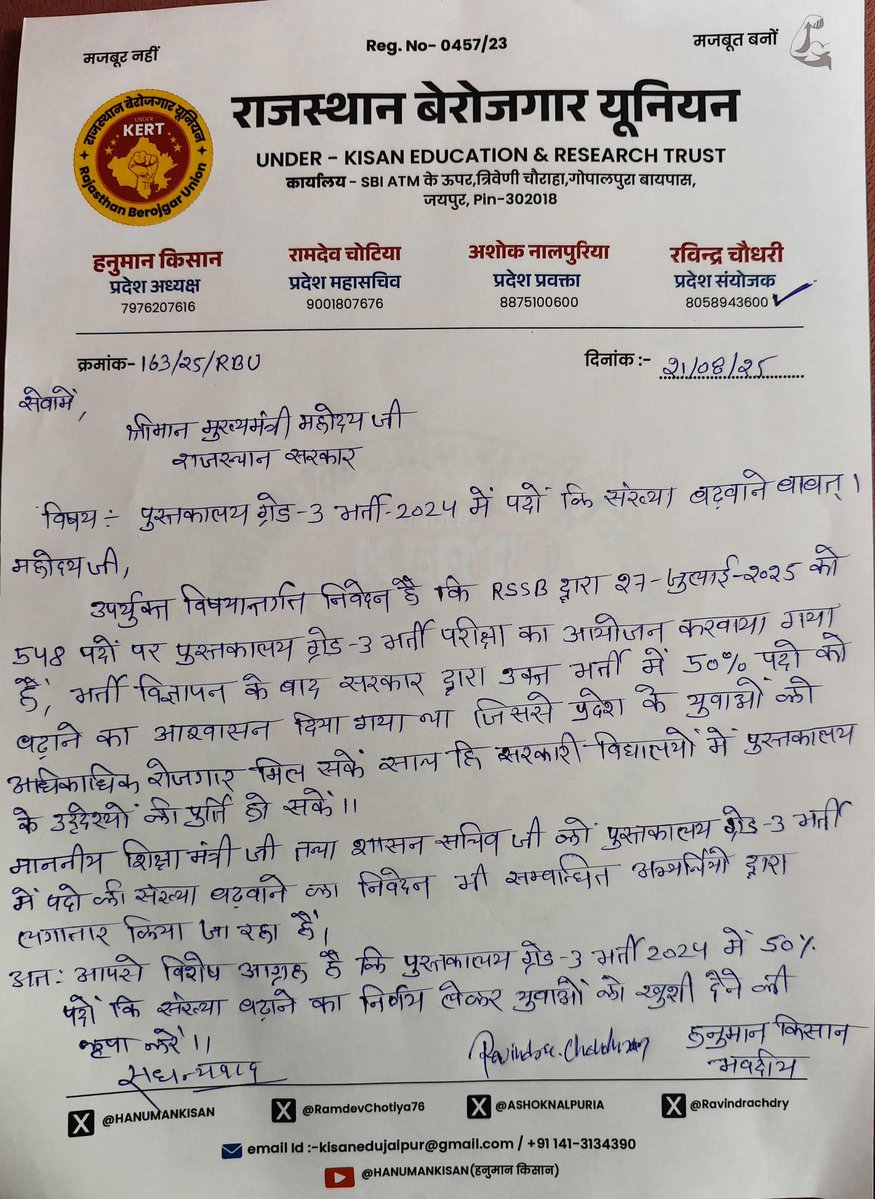 मजबूर नहीं
Reg. No- 0457/23
मजबूत बनों
राजस्थान बेरोजगार यूनियन
UNDER KERT
Rajasthan Berojgar Union
राजस्थान बेरोजगार यूनियन
UNDER - KISAN EDUCATION & RESEARCH TRUST
कार्यालय - SBI ATM के ऊपर,त्रिवेणी चौराहा,गोपालपुरा बायपास,
जयपुर, Pin-302018
हनुमान किसान रामदेव चोटिया अशोक नालपुरिया रविन्द्र चौधरी
प्रदेश अध्यक्ष प्रदेश महासचिव प्रदेश प्रवक्ता प्रदेश संयोजक
7976207616 9001807676 8875100600 8058943600
क्रमांक- 163/25/RBU दिनांक :- 21/08/25
सेवामें,
श्रीमान मुख्यमंत्री महोदय जी
राजस्थान सरकार
विषय :- पुस्तकालय ग्रेड-3 भर्ती-2024 में पदों कि संख्या बढ़वाने बाबत्।
महोदय जी,
उपर्युक्त विषयान्तर्गत निवेदन है कि RSSB द्वारा 27-जुलाई-2025 को
548 पदों पर पुस्तकालय ग्रेड-3 भर्ती परीक्षा का आयोजन करवाया गया
हैं, भर्ती विज्ञापन के बाद सरकार द्वारा उक्त भर्ती में 50% पदो को
बढ़ाने का आश्वासन दिया गया था जिससे प्रदेश के युवाओं को
अधिकाधिक रोजगार मिल सकें साथ हि सरकारी विद्यालयों में पुस्तकालय
के उद्देश्यों की पुर्ति हो सकें।।
माननीय शिक्षा मंत्री जी तथा शासन सचिव जी को पुस्तकालय ग्रेड-3 भर्ती
में पदो की संख्या बढ़वाने का निवेदन भी सम्बान्धित अभ्यर्थियो द्वारा
लगातार किया जा रहा हैं।
अत: आपसे विशेष आग्रह है कि पुस्तकालय ग्रेड-3 भर्ती 2024 में 50%
पदों कि संख्या बढ़ाने का निर्णय लेकर युवाओं को खुशी देने की
कृपा करें।।
सधन्यवाद
Ravindra Choudhary
हनुमान किसान
भवदीय
@HANUMANKISAN @RamdevChotiya76 @ASHOKNALPURIA @Ravindrachdry
email Id :-kisanedujaipur@gmail.com / +91 141-3134390
@HANUMANKISAN(हनुमान किसान)